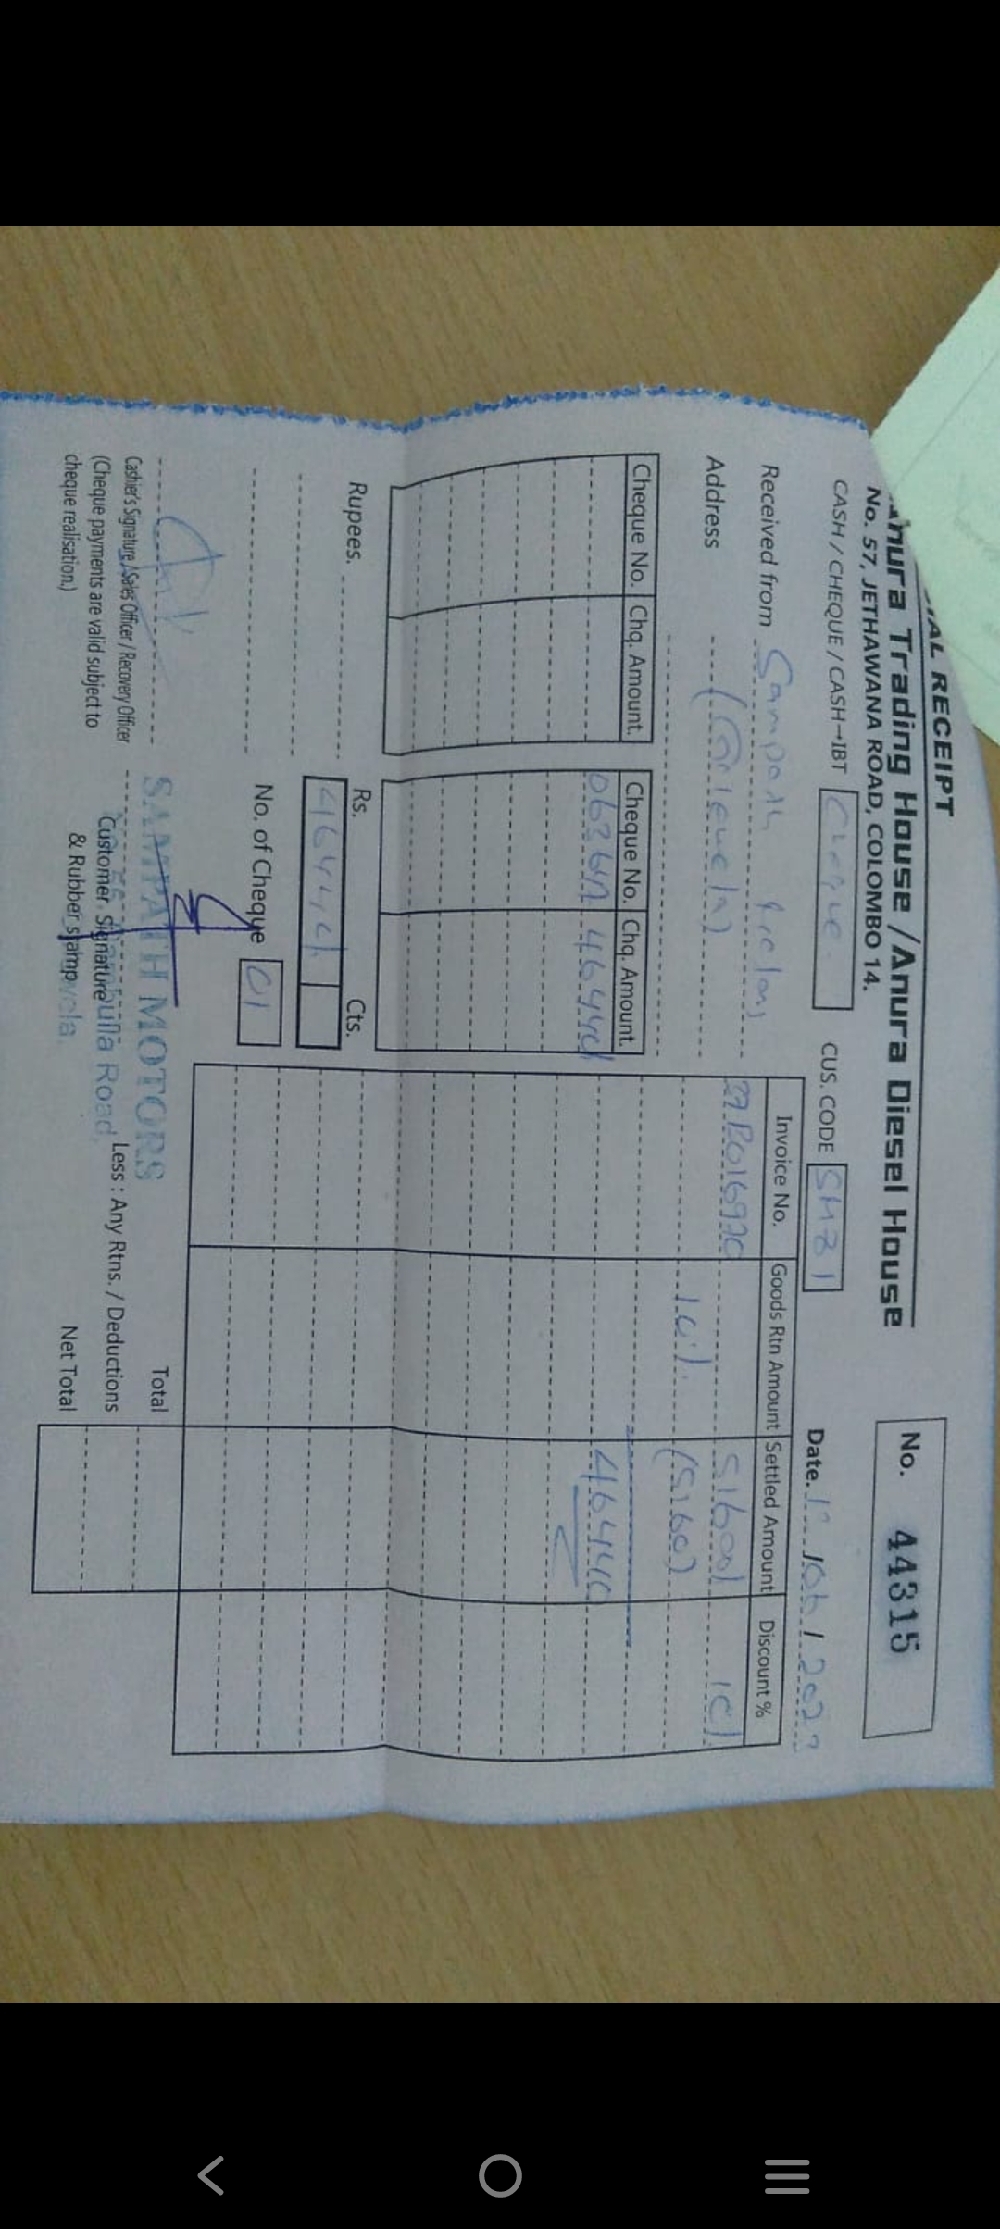 IAL RECEIPT
Anura Trading House / Anura Diesel House
No. 57, JETHAWANA ROAD, COLOMBO 14.
No. 44315
CASH / CHEQUE / CASH→IBT Cheque CUS. CODE Date. / 06 /
Received from Sampath
Address
Cheque No. Chq. Amount. Cheque No. Chq. Amount.
46440
Invoice No. Goods Rtn Amount Settled Amount Discount %
51600 10
10%. (5160)
46440
Rupees. Rs. Cts.
46440
No. of Cheque 01
Cashier's Signature / Sales Officer / Recovery Officer
(Cheque payments are valid subject to
cheque realisation.)
SAMPATH MOTORS
Road,
Customer Signature
& Rubber stamp
Total
Less : Any Rtns. / Deductions
Net Total